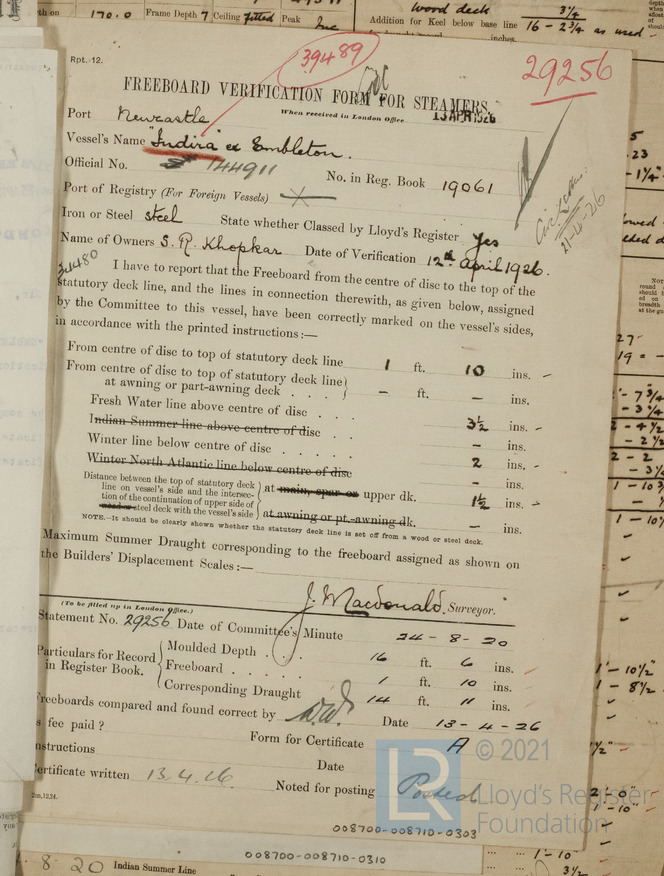 170.0 Frame Depth 7 Ceiling fitted Peak
Wood deck 3/4
Addition for Keel below base line 16 - 2 3/4 as used
inches.
Rpt. 12.
39489
29256
FREEBOARD VERIFICATION FORM FOR STEAMERS.
When received in London Office 13 APR 1926
Port Newcastle
Vessel's Name "Indira" ex Embleton.
Official No. 144911
No. in Reg. Book 19061
Port of Registry (For Foreign Vessels)
Iron or Steel steel State whether Classed by Lloyd's Register Yes
Name of Owners S. R. Khopkar Date of Verification 12th April 1926.
21-4-26
31480
I have to report that the Freeboard from the centre of disc to the top of the
statutory deck line, and the lines in connection therewith, as given below, assigned
by the Committee to this vessel, have been correctly marked on the vessel's sides,
in accordance with the printed instructions:—
From centre of disc to top of statutory deck line 1 ft. 10 ins.
From centre of disc to top of statutory deck line
at awning or part-awning deck . . . – ft. – ins.
Fresh Water line above centre of disc . . . 3½ ins.
Indian Summer line above centre of disc . – ins.
Winter line below centre of disc . . . . . 2 ins.
Winter North Atlantic line below centre of disc – ins.
Distance between the top of statutory deck
line on vessel's side and the intersec-
tion of the continuation of upper side of
wood or steel deck with the vessel's side
at main, spar or upper dk. 1½ ins.
at awning or pt.-awning dk. – ins.
NOTE.—It should be clearly shown whether the statutory deck line is set off from a wood or steel deck.
Maximum Summer Draught corresponding to the freeboard assigned as shown on
the Builders' Displacement Scales:—
J. Macdonald. Surveyor.
(To be filled up in London Office.)
Statement No. 29256 Date of Committee's Minute 24-8-20
Particulars for Record
in Register Book.
Moulded Depth . . 16 ft. 6 ins.
Freeboard . . . . . 1 ft. 10 ins.
Corresponding Draught 14 ft. 11 ins.
Freeboards compared and found correct by Date 13-4-26
s fee paid ? Form for Certificate A
nstructions Date
ertificate written 13.4.26 Noted for posting Posted
2m,12,24.
© 2021
LR Lloyd's Register
Foundation
008700-008710-0303
008700-008710-0310
8 20 Indian Summer Line